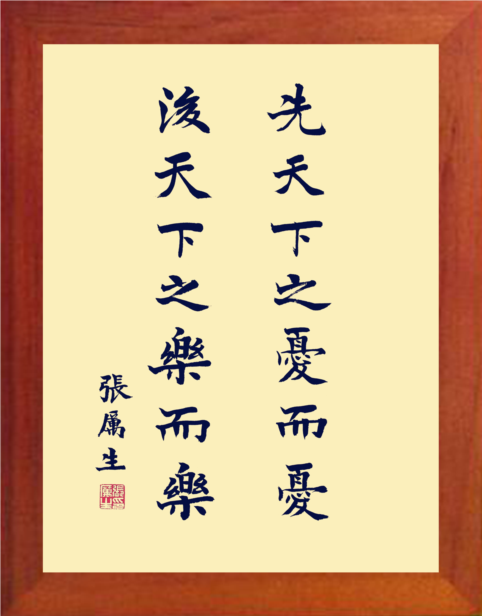 先天下之憂而憂
後天下之樂而樂
張厲生